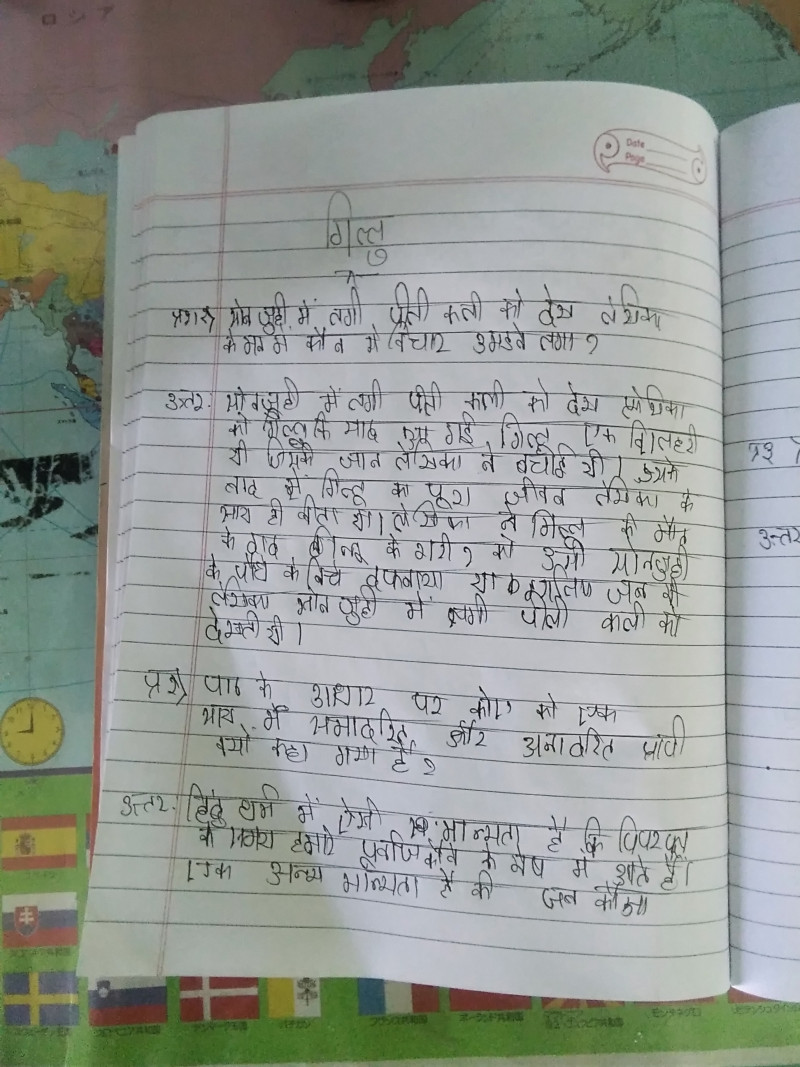 ロシア
Date
Page
गिल्लू
प्रश्न१) सोनजुही में लगी पीली कली को देख लेखिका
के मन में कौन से विचार उमडने लगा ?
उत्तर: सोनजुही में लगी पीली कली को देख लेखिका
को गिल्लू कि याद आ गई गिल्लू एक गिलहरी
थी जिसकी जान लेखिका ने बचाई थी। उसके
बाद से गिल्लू का पूरा जीवन लेखिका के
साथ ही बीता था। लेखिका ने गिल्लू की मौत
के बाद गिल्लू के शरीर को उसी सोनजुही
के पौधे के बिच दफनाया था इसलिए जब भी
लेखिका सोनजुही में लगी पीली कली को
देखती थी।
प्र २) पाठ के आधार पर कौए को एक
साथ में समादरित और अनादरित प्राणी
क्यों कहा गया है ?
उत्तर: हिंदू धर्म में ऐसी मान्यता है कि पितरपक्ष
के समय हमारे पूर्वज कौवे के भेष में आते है।
एक अन्य मान्यता है की जब कौआ
प्र३
उत्तर